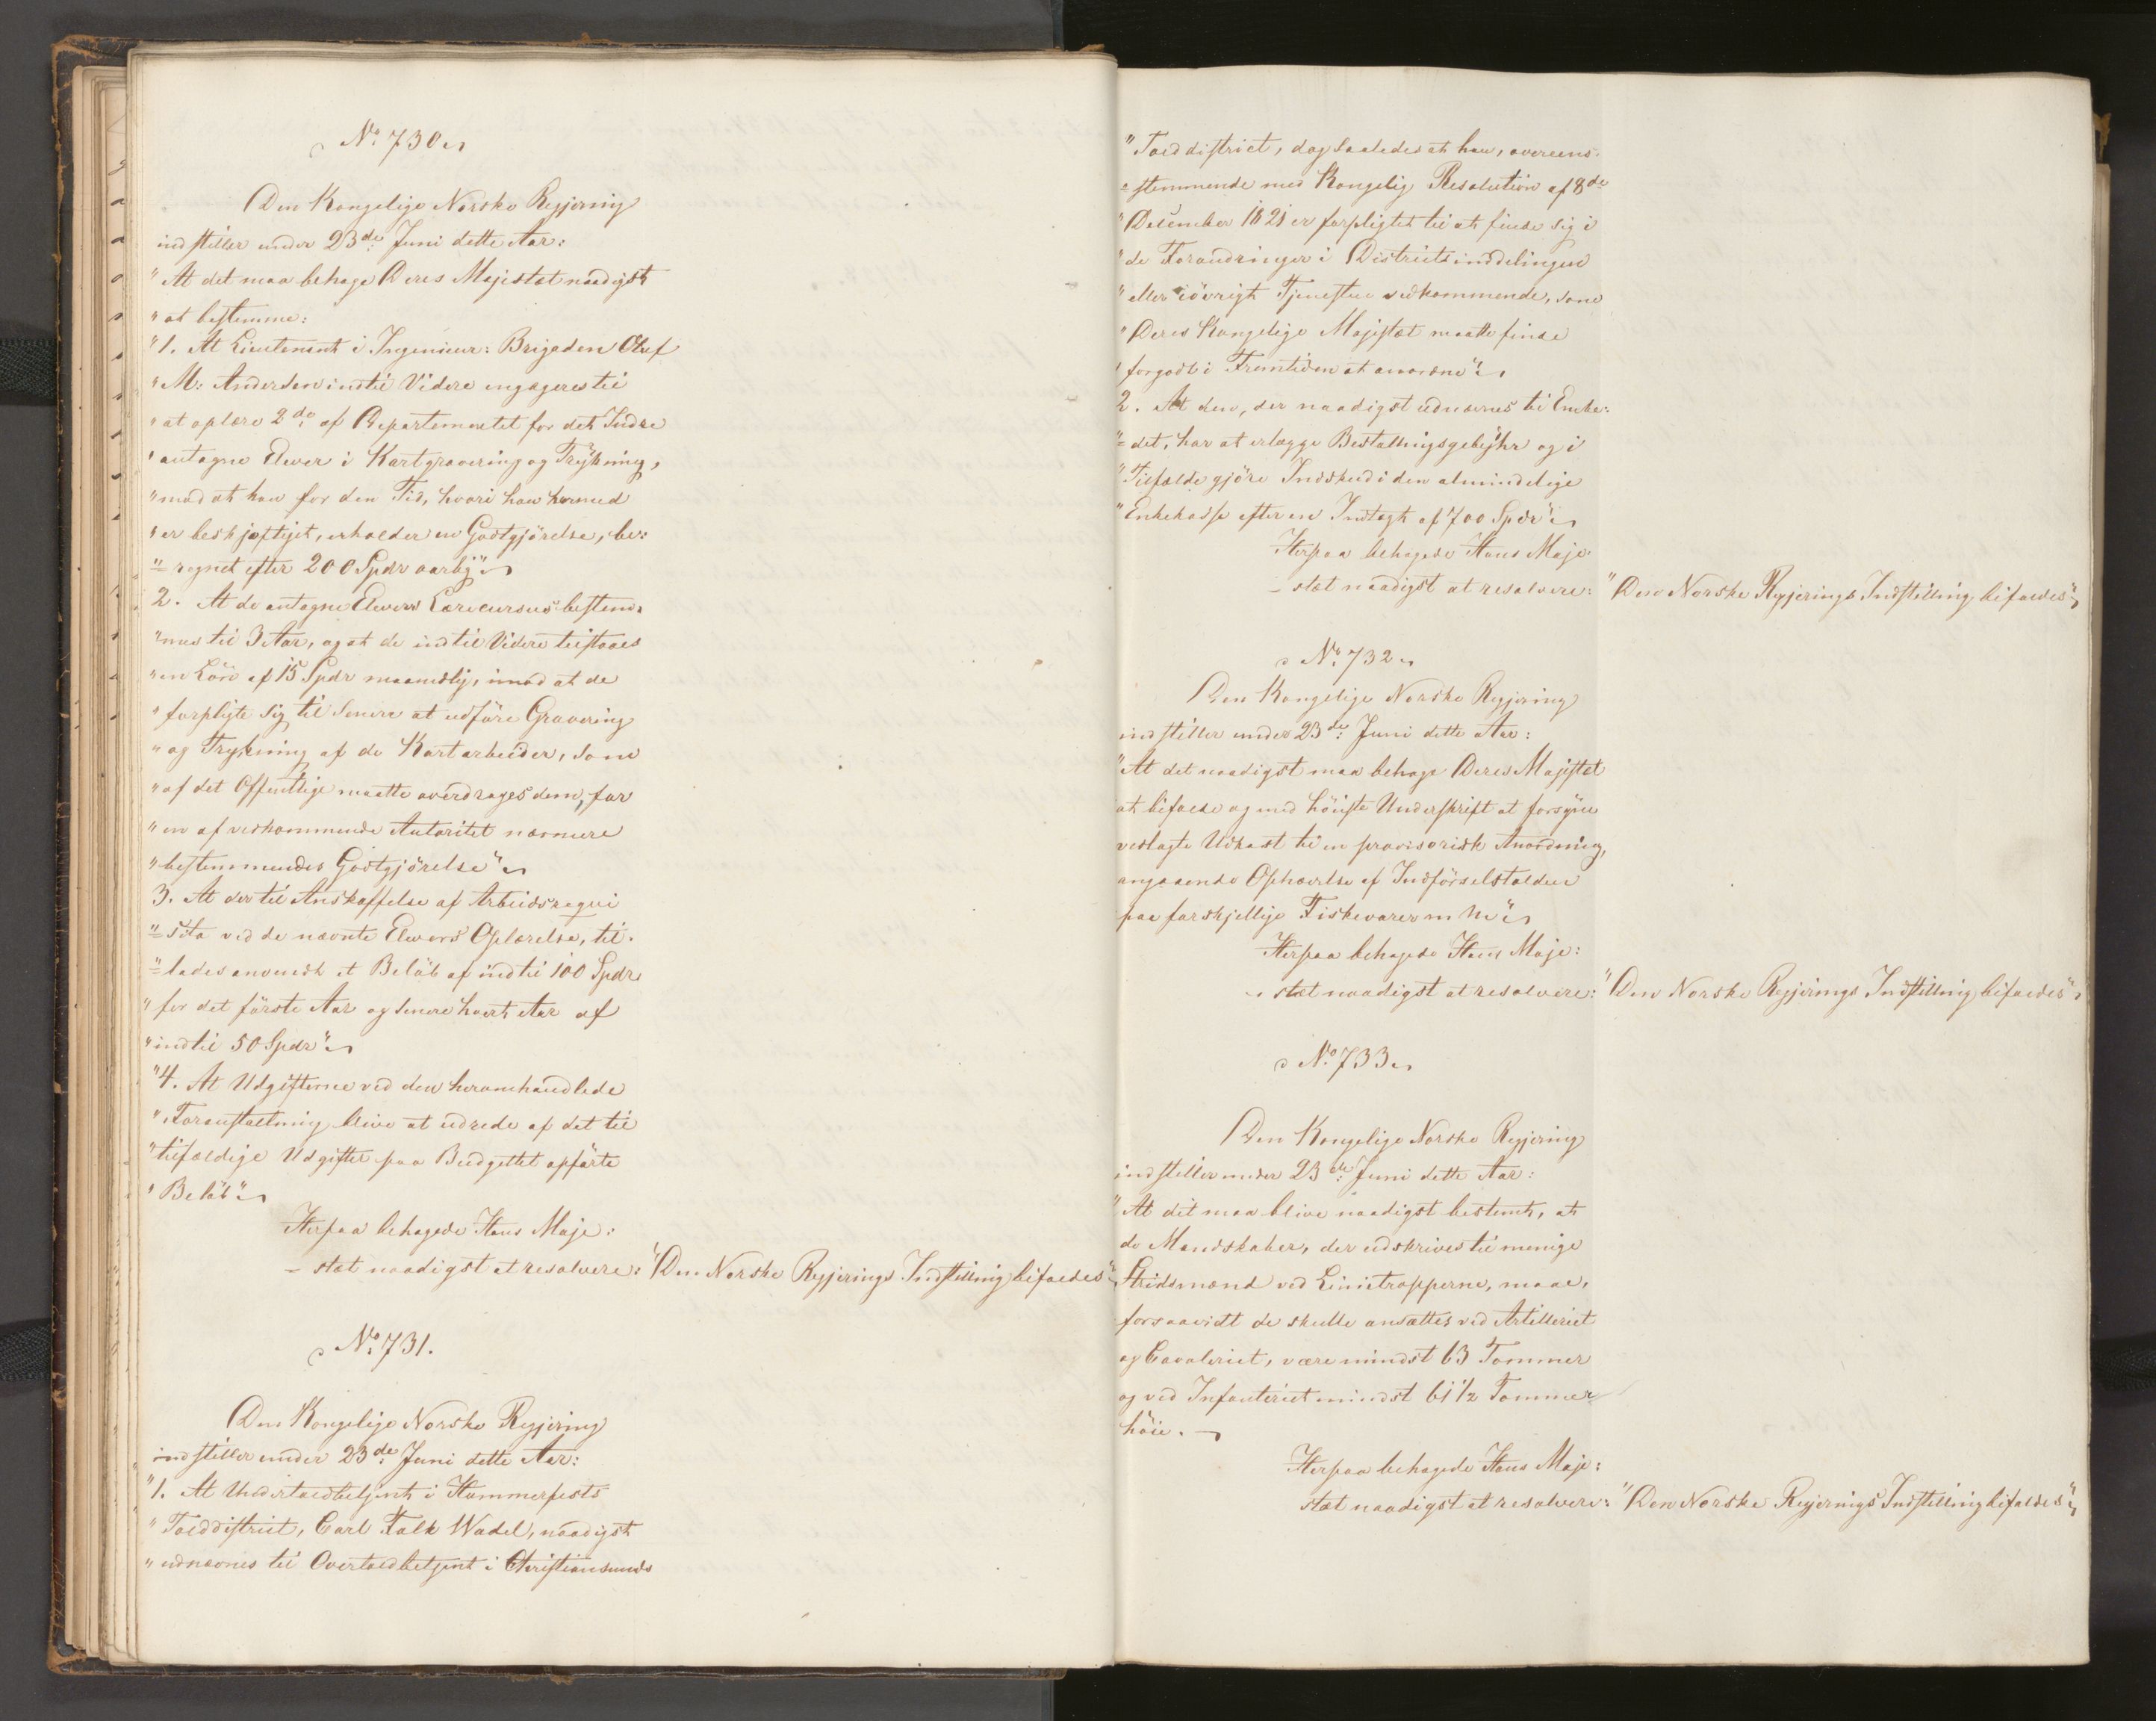 No. 730.
Den Kongelige Norske Regjering
indstiller under 23de Juni dette Aar:
"At det maa behage Deres Majestæt naadigst
"at bestemme:
"1. At Lieutenant i Ingenieur-Brigaden Oluf
"M: Andersen indtil Videre engageres til
"at oplære 2de af Departementet for det Indre
"antagne Elever i Kartgravering og Trykning,
"mod at han for den Tid, hvori han hermed
"er beskjæftiget, erholder en Godtgjörelse, be-
"=regnet efter 200 Spdr aarlig"
2. At de antagne Elevers Lærecursus bestem-
"mes til 3 Aar, og at de indtil Videre tilstaaes
"en Lön af 15 Spdr maanedlig, imod at de
"forpligte sig til senere at udföre Gravering
"og Trykning af de Kartarbeider, som
"af det Offentlige maatte overdrages dem, for
"en af vedkommende Autoritet nærmere
"bestemmendes Godtgjörelse"
3. At der til Anskaffelse af Arbeidsreqvi
"=sita ved de nævnte Elevers Oplærelse, til-
"=lades anvendt et Belöb af indtil 100 Spdr
"for det förste Aar og senere hvert Aar af
"indtil 50 Spdr"
"4. At Udgifterne ved den heromhandlede
"Foranstaltning blive at udrede af det til
"tilfældige Udgifter paa Budgettet opförte
"Belöb"
Herpaa behagede Hans Maje-
=stæt naadigst at resolvere: "Den Norske Regjerings Indstilling bifaldes"
No. 731.
Den Kongelige Norske Regjering
indstiller under 23de Juni dette Aar:
"1. At Undertoldbetjent i Hammerfests
"Tolddistrict, Carl Falk Wadel, naadigst
"udnævnes til Overtoldbetjent i Christiansunds
"Tolddistrict, dog saaledes at han, overeens-
=stemmende med Kongelig Resolution af 8de
"December 1821 er forpligtet til at finde sig i
"de Forandringer i Districtsinddelingen
"eller iövrigt Tjenesten vedkommende, som
"Deres Kongelige Majestæt maatte finde
"forgodt i Fremtiden at anordne"
2. At den, der naadigst udnævnes til Embe-
"=det, har at erlægge Bestallingsgebyhr og i
"Tilfælde gjöre Indskud i den almindelige
"Enkekasse efter en Indtægt af 700 Spdr"
Herpaa behagede Hans Maje-
=stæt naadigst at resolvere: "Den Norske Regjerings Indstilling bifaldes"
No. 732.
Den Kongelige Norske Regjering
indstiller under 23de Juni dette Aar:
"At det naadigst maa behage Deres Majestæt
at bifalde og med höieste Underskrift at forsyne
vedlagte Udkast til en provisorisk Anordning,
angaaende Ophævelse af Indförselstolden
paa forskjellige Fiskevarer m M"
Herpaa behagede Hans Maje-
=stæt naadigst at resolvere: "Den Norske Regjerings Indstilling bifaldes"
No. 733.
Den Kongelige Norske Regjering
indstiller under 23de Juni dette Aar:
"At det maa blive naadigst bestemt, at
de Mandskaber, der udskrives til menige
Stridsmænd ved Linietropperne, maae,
forsaavidt de skulle ansættes ved Artilleriet
og Cavaleriet, være mindst 63 Tommer
og ved Infanteriet mindst 61 1/2 Tommer
höie.
Herpaa behagede Hans Maje-
stæt naadigst at resolvere: "Den Norske Regjerings Indstilling bifaldes"